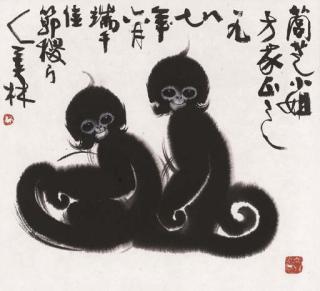 蘭芝小姐
方家正之
一九
八
七
年
六月
端午
佳
節稷下
人美林